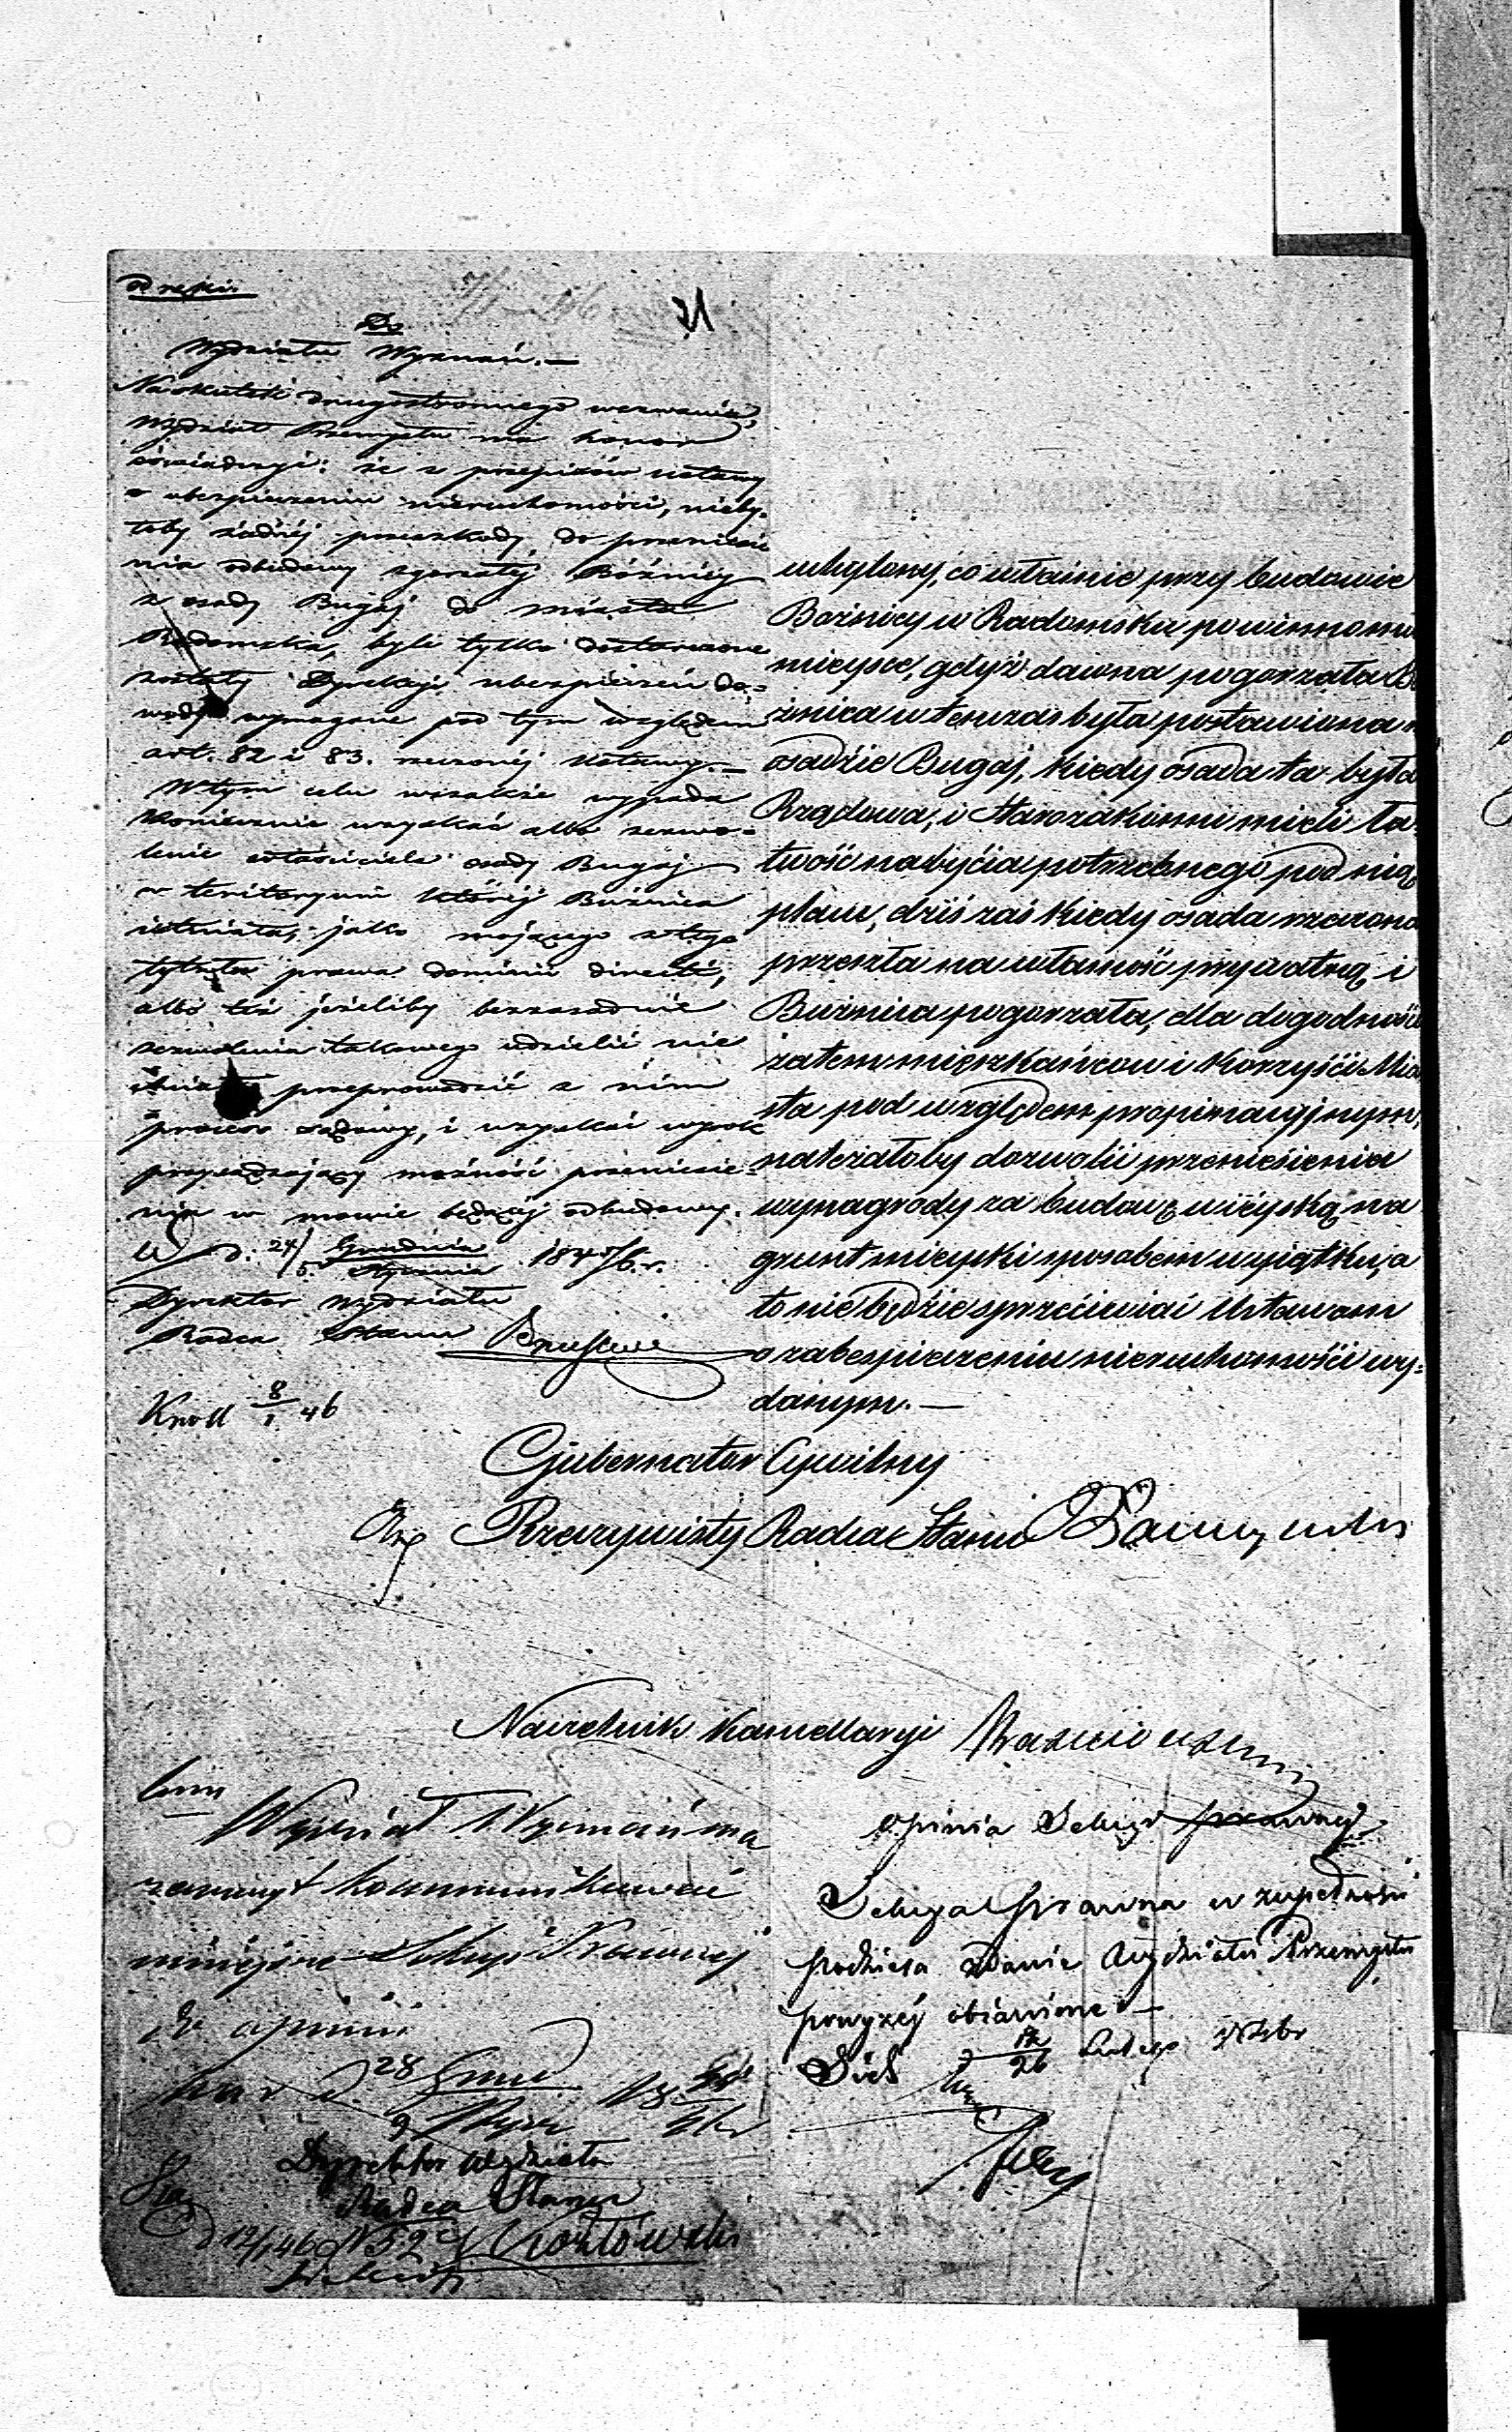 od ręki
21
Do
Wydziału Wyznań. —
Na skutek drugostronnego wezwania,
Wydział Przemysłu ma honor
oświadczyć: że z przepisów ustawy
o ubezpieczeniu nieruchomości, nieby-
łoby żadnéj przeszkody do przeniesie
nia odbudowy zgorzałéj Bóżnicy
z osady Bugaj do miasta
Radomska, byle tylko dostarczone
zostały Dyrekcyi ubezpieczeń do-
wody wymagane pod tym względem
art. 82 i 83. rzeczonéj ustawy. —
W tym celu wszakże wypada
koniecznie uzyskać albo zezwo-
lenie właściciela osady Bugaj
w teritoryum któréj Bóżnica
istniała, jako mającego z tego
tytułu prawa dominii directi,
albo też jeżeliby bezzasadnie
zezwolenia takowego udzielić nie
chciał przeprowadzić z nim
proces sądowy, i uzyskać wyrok
przysądzający możność przeniesie-
nia w mowie będącéj odbudowy.
W d. 24/5 Grudnia/Stycznia 1845/6 r.
Dyrektor Wydziału
Radca Stanu
Knoll 8/1 46
uchylony, co właśnie przy budowie
Bożnicy w Radomsku powinno mi
mieysce, gdyż dawna pogorzała Bo
żnica w tenczas była postawiona n
osadzie Bugaj, kiedy osada ta była
Rządowa, i Starozakonni mieli ła-
twość nabycia potrzebnego pod nią
placu, dziś zaś kiedy osada rzeczona
przeszła na własność prywatną i
Bużnica pogorzała, dla dogodności
zatem mieszkańcow i korzyści Mia
sta pod względem propinacyjnym,
należałoby dozwolić przeniesienia
wynagrody za budowę wiéyską na
grunt mieyski sposobem wyiątku, a
to nie będzie sprzeciwiać Ustawom
o zabespieczeniu nieruchomości wy-
danym. —
Gubernator Cywilny
Rzeczywisty Radca Stanu
Naczelnik Kancellaryi
Wydział Wyznań ma
zaszczyt kommunikować
niniejsze Sekcyi Prawnej
do opinii
War d. 28 Grud/9 Stycz
Dyrektor Wydziału
Radca Stanu
d 12/1 46 N 52 Kozłowski
Opinia Sekcyi prawney
Sekcya prawna w zupełności
podziela zdanie Wydziału Przemysłu
powyżéj obiawione —
14/26 Lutego 1846 r